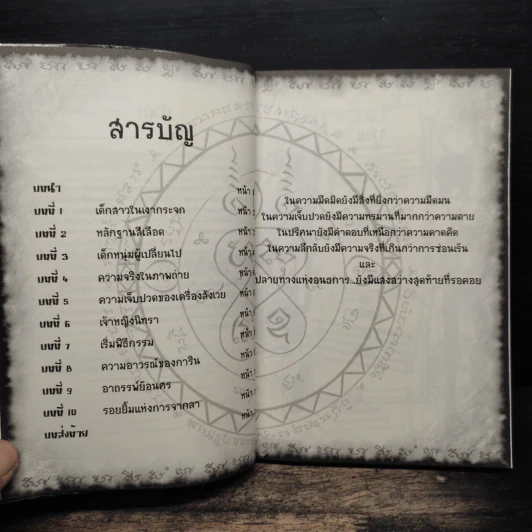 สารบัญ
บทนำ หน้า
บทที่ 1 เด็กสาวในเงากระจก หน้า
บทที่ 2 หลักฐานสีเลือด หน้า
บทที่ 3 เด็กหนุ่มผู้เปลี่ยนไป หน้า
บทที่ 4 ความจริงในภาพถ่าย หน้า
บทที่ 5 ความเจ็บปวดของเครื่องสังเวย หน้า
บทที่ 6 เจ้าหญิงนิทรา หน้า
บทที่ 7 เริ่มพิธีกรรม หน้า
บทที่ 8 ความอาวรณ์ของการิน หน้า
บทที่ 9 อาถรรพ์ย้อนศร หน้า
บทที่ 10 รอยยิ้มแห่งการจากลา หน้า
บทส่งท้าย
ในความมืดมิดยังมีสิ่งที่ยิ่งกว่าความมืดมน
ในความเจ็บปวดยังมีความทรมานที่มากกว่าความตาย
ในปริศนายังมีคำตอบที่เหนือกว่าความคาดคิด
ในความลึกลับยังมีความจริงที่เกินกว่าการซ่อนเร้น
และ
ปลายทางแห่งอนธการ...ยังมีแสงสว่างสุดท้ายที่รอคอย